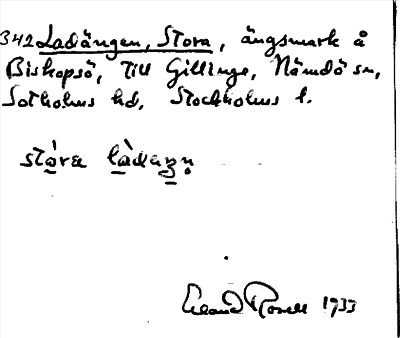 342 Ladängen, Stora, ängsmark å
Biskopsö, till Gillinge, Nämdö sn,
Sotholms hd, Stockholms l.
stɑ̀ra
Rosell 1933